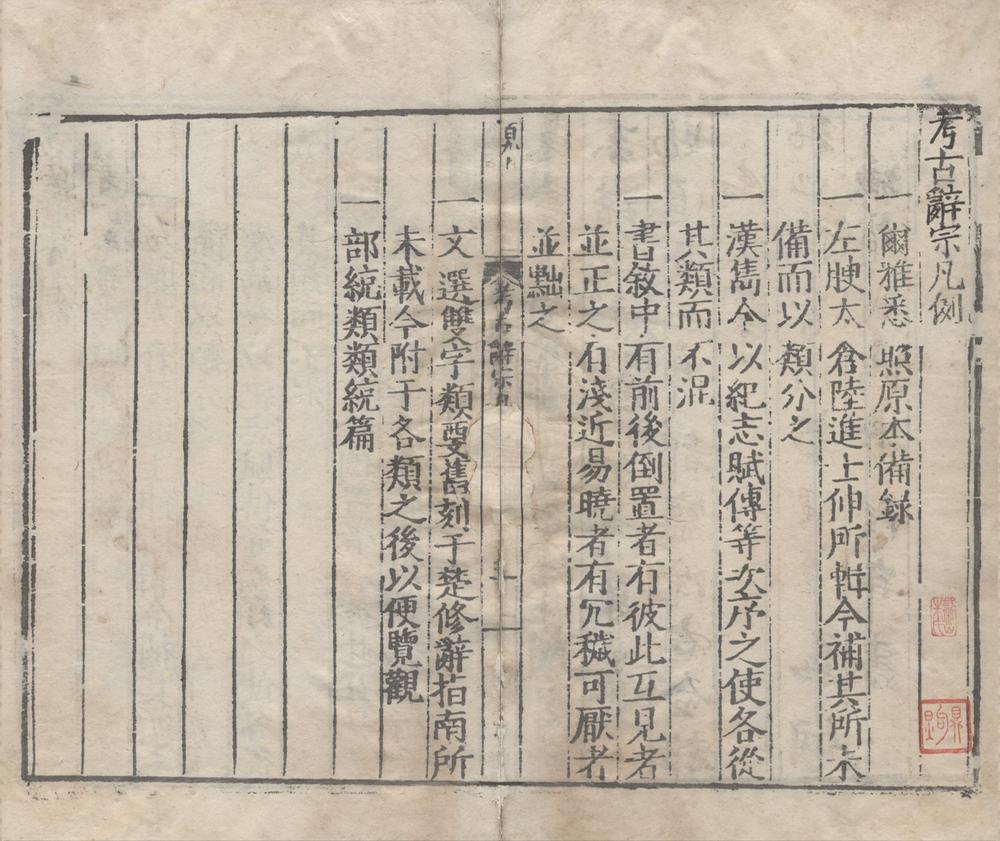 考古辭宗凡例
一爾雅悉照原本備録
一左腴太倉陸進士伸所輯今補其所未
備而以類分之
一漢雋今以紀志賦傳等次序之使各從
其類而不混
一書敘中有前後倒置者有彼此互見者
並正之有淺近易曉者有冗穢可厭者
並黜之
考古辭宗凡
一
一文選雙字類要舊刻于楚修辭指南所
未載今附于各類之後以便覽觀
一部統類類統篇